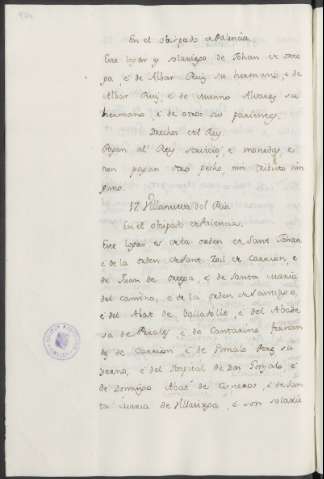 En el obispado de Palencia.
Este logar es solariego de Johan de Ore
pa, é de Albar Ruiz su hermano, é de
Albar Ruiz, é de Nunno Alvarez su
hermano, é de otros sus parientes.
Derechos del Rey
Pagan al Rey servicio, é monedas é
non pagan otro pecho nin tributo nin
guno.
17. Villanueva del Rio.
En el obispado de Palencia.
Este logar es de la orden de Sant Johan
é de la orden de Sant Zoil de Carrion, é
de Juan de Orega, é de Santa Maria
del Camino, é de la orden de Santiago,
é del Abat de Balladolid, é del Abade
sa de Perales, é de Cantarina Ferran
dez de Carrion, é de Gonzalo Perez su
yerno, é del Hospital de Don Gonzalo, é
de Domingo Abat de Cisneros, é de San
ta Maria de Villasirga, é son solarie